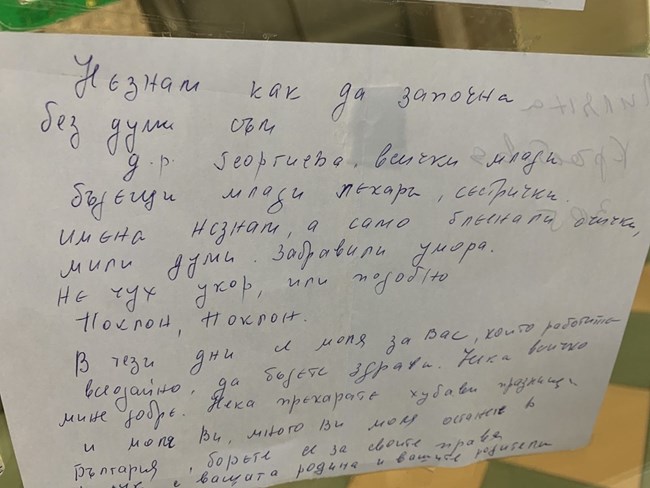 Незнам как да започна
без думи съм
д.р. Георгиева. всички млади
бъдещи млади лекари, сестрички.
имена незнам, а само блеснали очички,
мили думи. Забравили умора.
Не чух укор, или подобно
Поклон, Поклон.
В тези дни се моля за Вас, които работите
всеодайно, да бъдете здрави. Нека всичко
мине добре. Нека прекарате хубави празници
и моля Ви, много Ви моля останете в
България, борете се за своите права
вашата родина и вашите родители